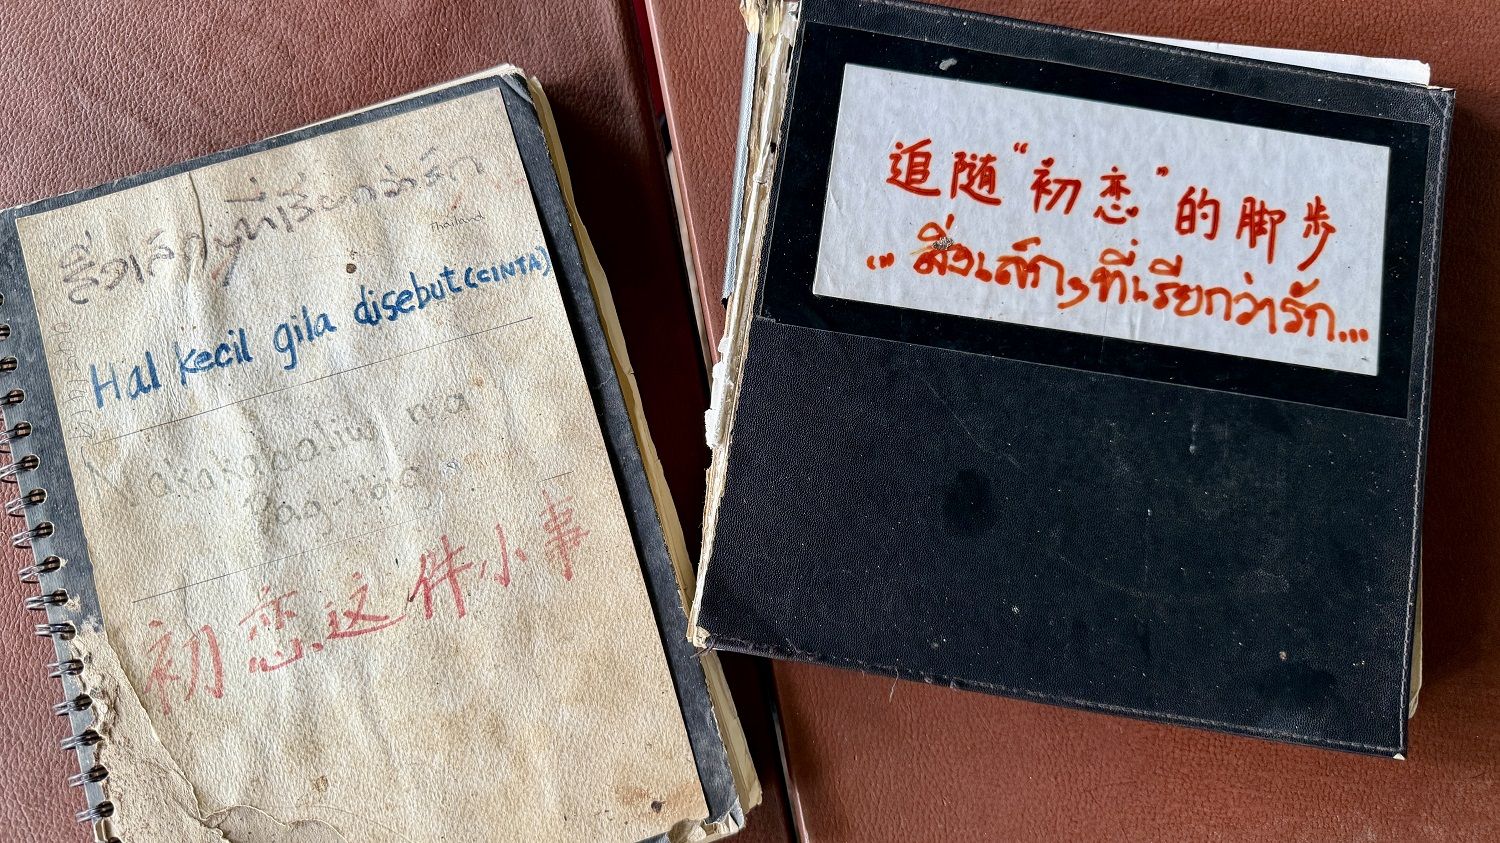 สิ่งเล็กๆที่เรียกว่ารัก
Thailand
Hal kecil gila disebut (CINTA)
Nakakabaliw na
Pag-ibig
初恋这件小事
追随“初恋”的脚步
... สิ่งเล็กๆที่เรียกว่ารัก...